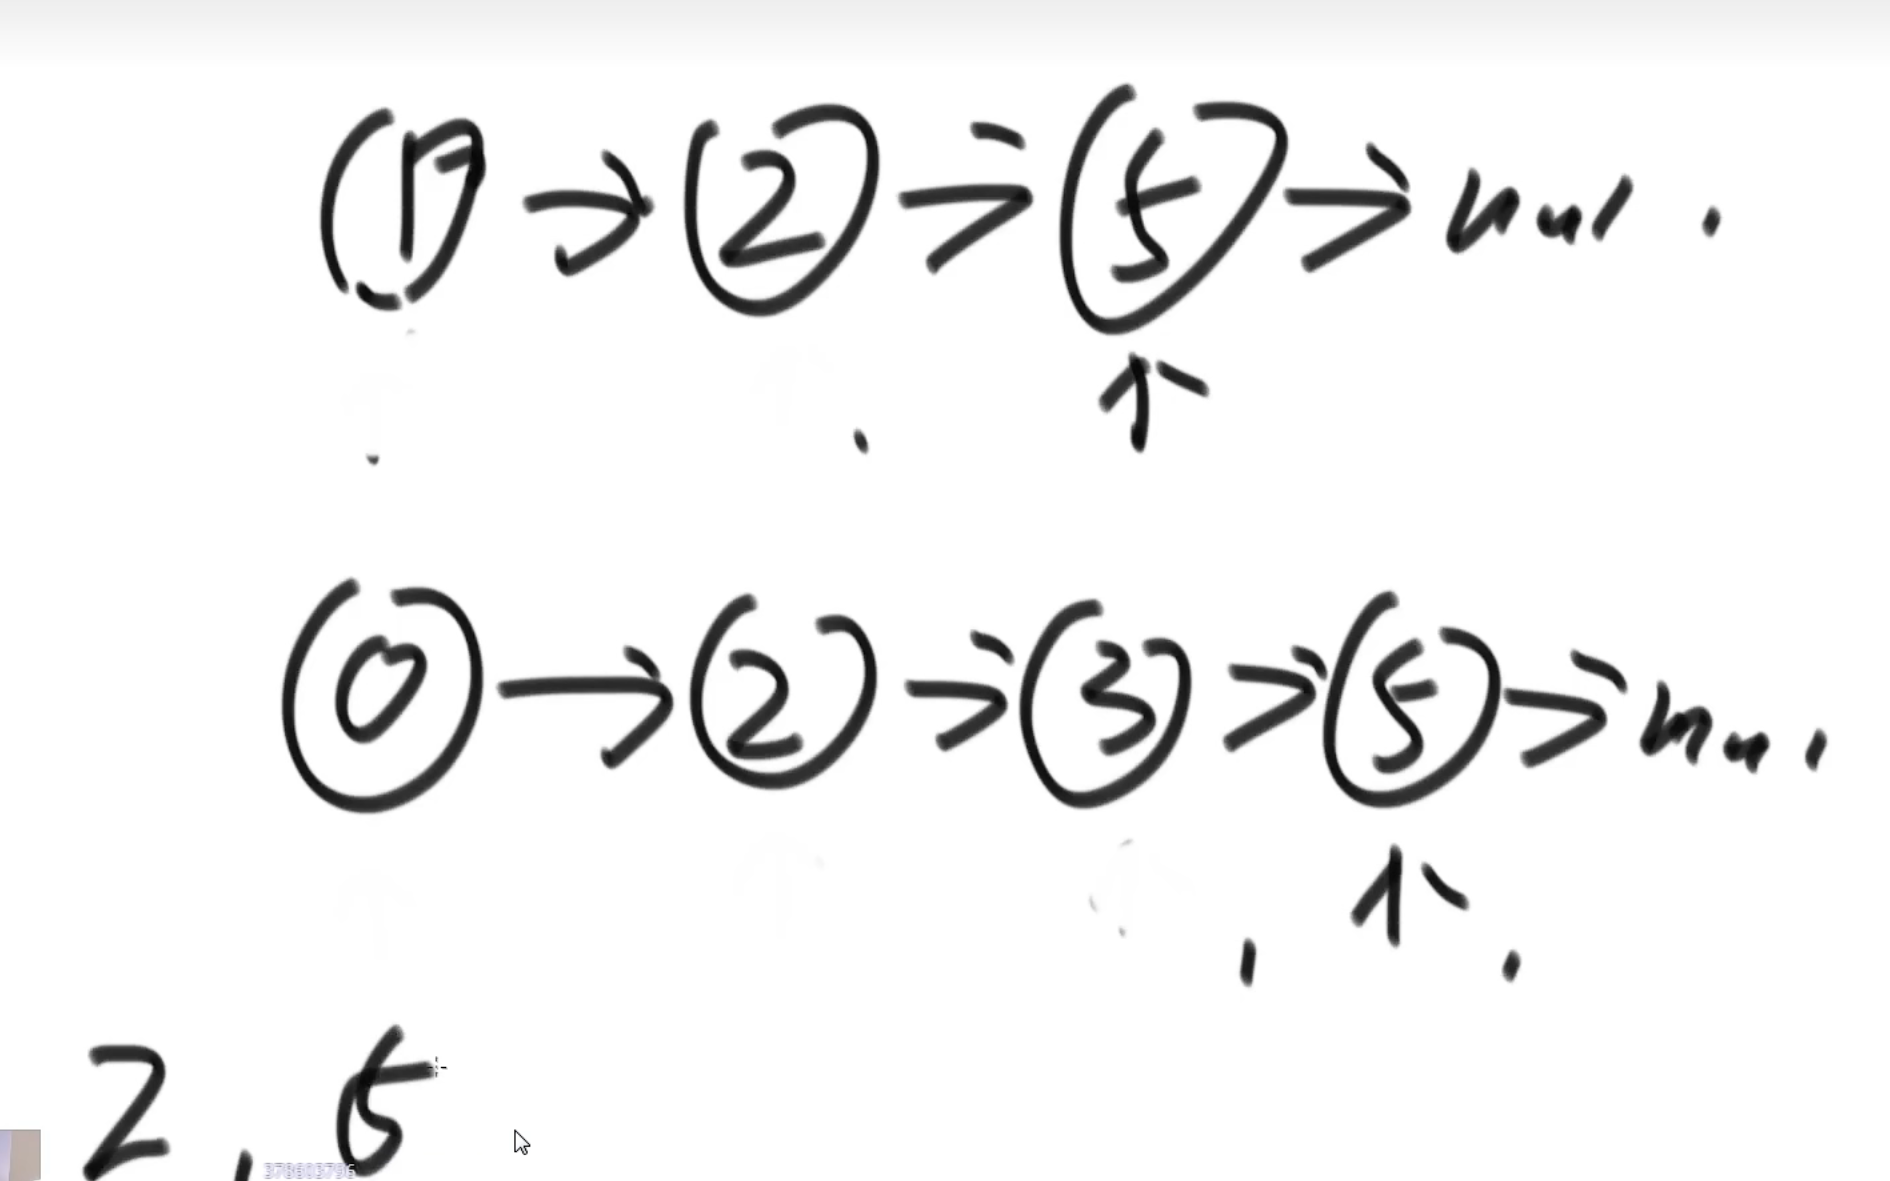 1 → 2 → 5 → nul
0 → 2 → 3 → 5 → nu
2, 5
378603796